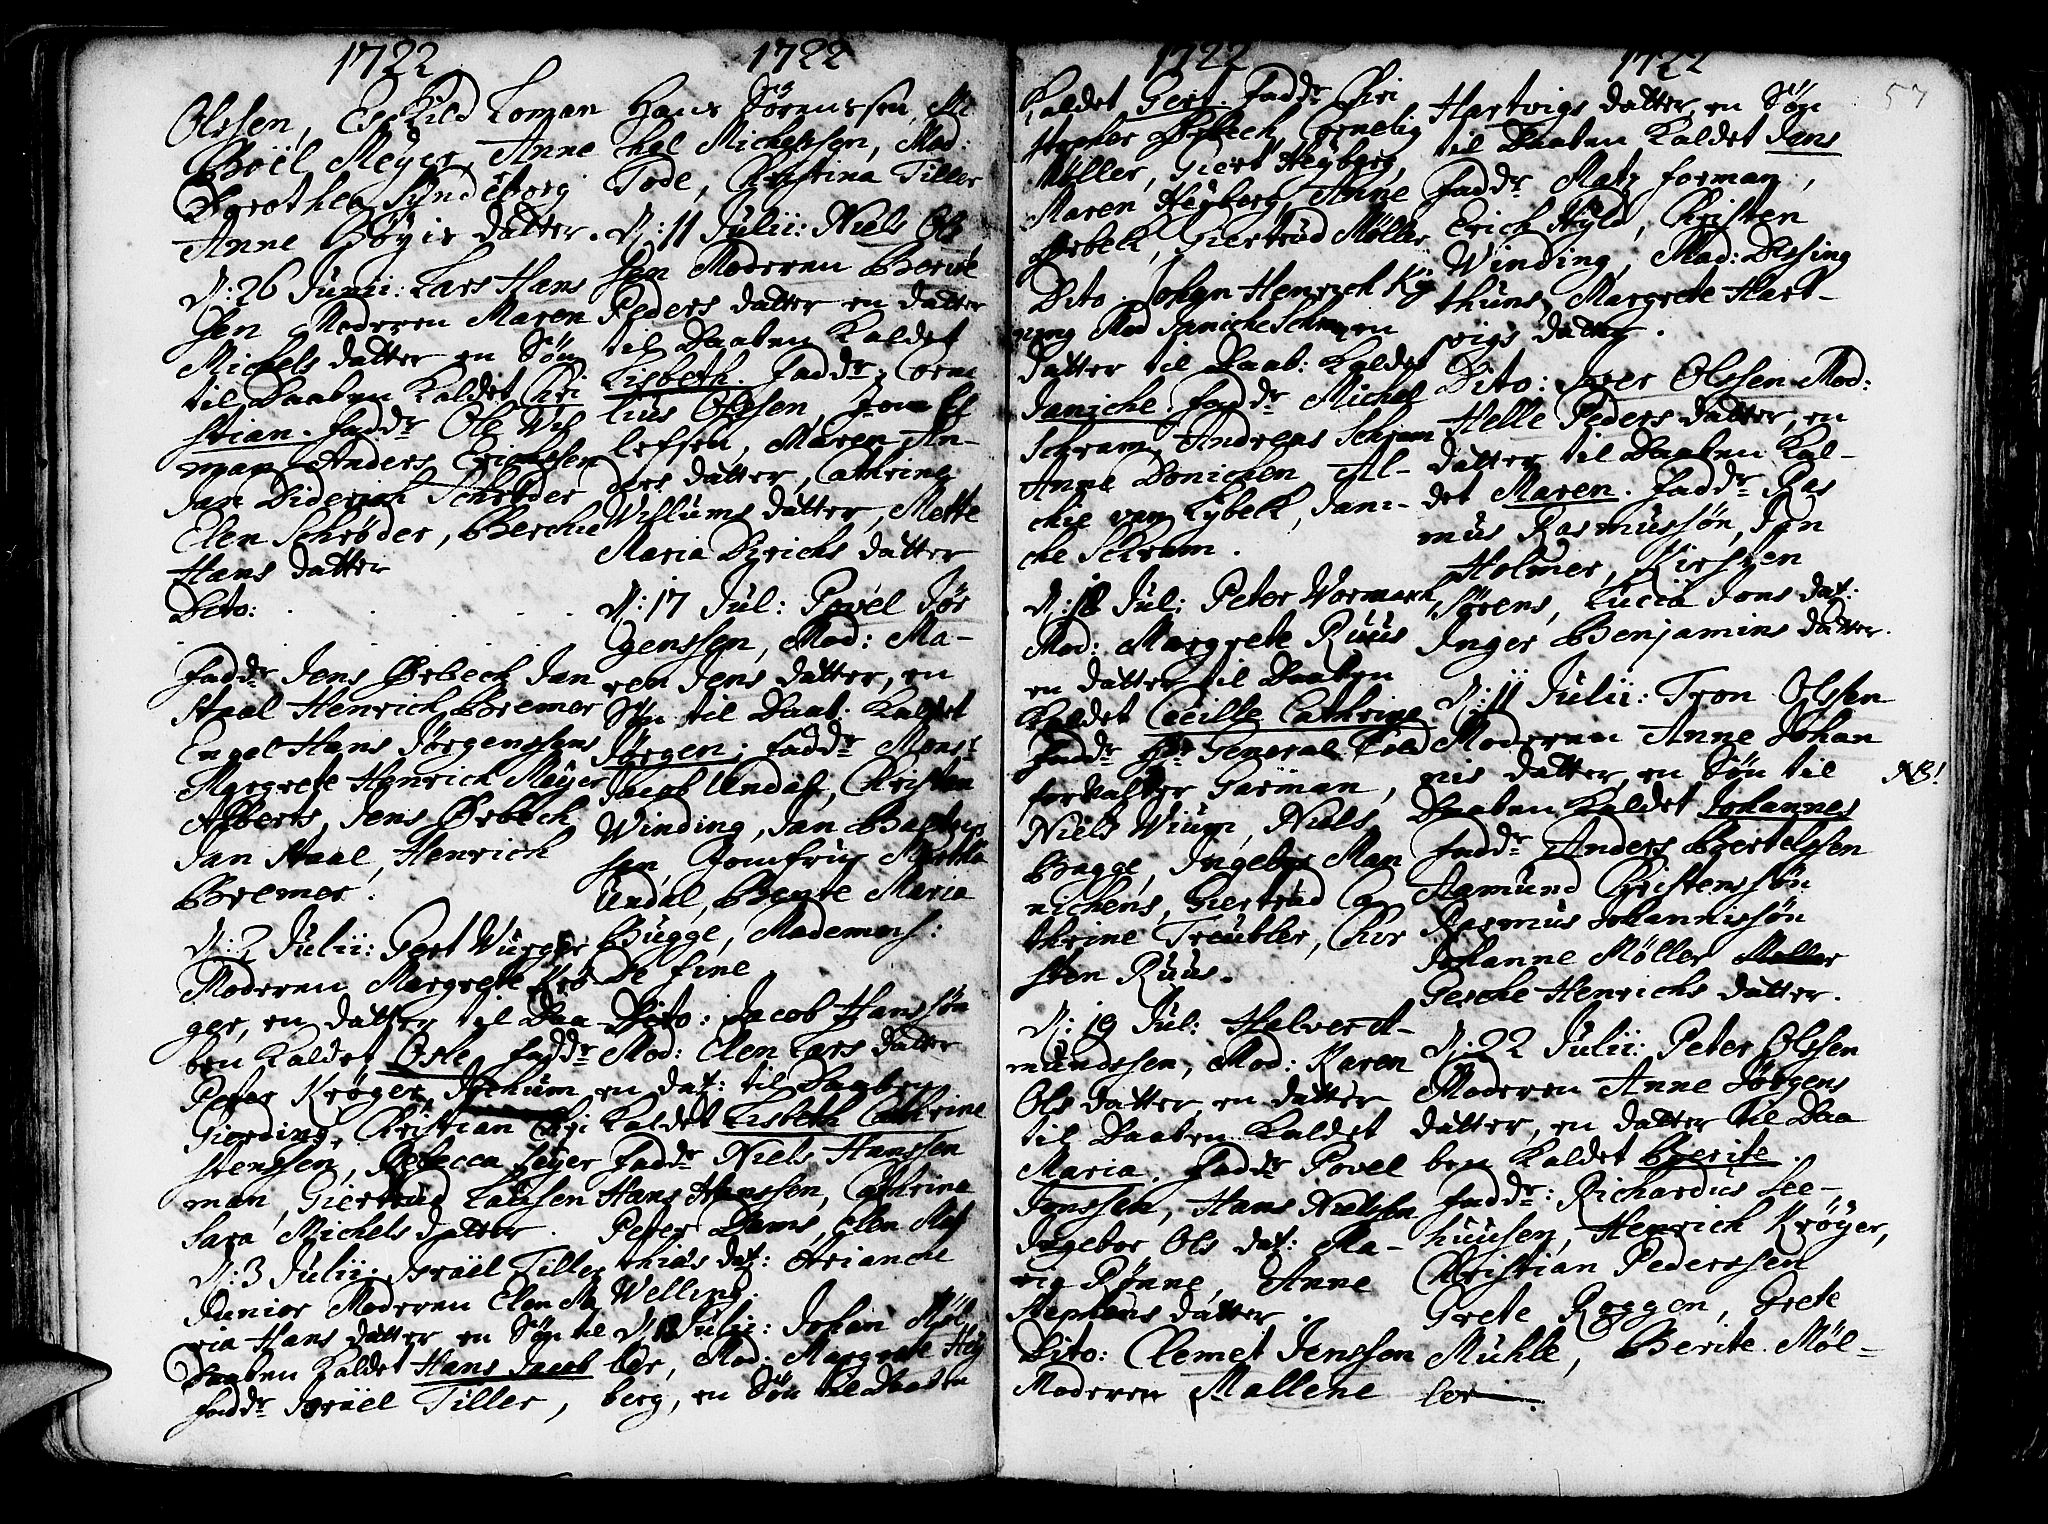 1722
Olssen, Eschild Loman
Boël Meÿer, Anne
Dorothea Sÿndeborg
Anne Bøyis datter.
D: 26 Junii: Lars Hans
sen Moderen Maren
Michels datter en Søn
til Daaben Kaldet Chri
stian. Fadd.r Ole
man Anders Erichssen
Jan Diderich Schrøder
Elen Schrøder, Berthe
Hans datter
Dito:
Fadd.r Jens Ørbech Jan
Staal Henrich Bremer
Engel Hans Jørgenssens
Margrete Henrich Meÿer
Alberts, Jens Ørbech
Jan Staal, Henrich
Bremer.
D: 2 Julii: Gert Wurger
Moderen Margrete Krø
ger, en datter til Daa
ben Kaldet Osle Fadd.r
Peter Krøger, Jochum
Gierding, Christian Chri
stenssen, Rebecca Heÿer
man, Giertrud Laussen
Sara Michels datter.
D: 3 Julii: Israël Tiller
Junior Moderen Elen Ma
ria Hans datter en Søn til
Daaben Kaldet Hans Jacob
Fadd.r Israël Tiller,
1722
Hans Sørenssen, Mi
chel Michelssen, Mad:
Tode, Christina Tiller
D: 11 Julii: Niels Ols
sen Moderen Berite
Peders datter en datter
til Daaben Kaldet
Lisbeth. Fadd.r, Corne
lius Olssen,
lefsen, Maren An-
ders datter, Cathrine
Willums datter, Mette
Maria Dirichs datter
D: 17 Jul: Povel Jør
genssen, Mod: Ma-
ren Jens datter, en
Søn til Daab: Kaldet
Jørgen; Fadd.r Mons.r
Jacob Undal, Christen
Winding, Jan Baptis
sen, Jomfrue Martha
Undal, Bente Maria
Bugge, Mademois:
De fine
Dito: Jacob Hanssøn
Mod: Elen Lars datter
en dat: til Daaben
Kaldet Lisbeth Cathrine
Fadd.r Niels Hanssen
Hans Hanssen, Cathrina
Peter Dams, Elen Mat
thias dat: Arianche
Welling.
D: Julii: Johan Møl
ler, Mod: Margrete Heÿ
berg, en Søn til Daaben
1722
Kaldet Gert. Fadd.r Chri
stopher Ørbech, Cornelig
Møller, Giert Heÿberg,
Maren Heÿberg, Anne
Ørbek, Giertrud Møller
Dito Johan Henrich Kÿ
Mod Janiche Schram en
datter til Daab: Kaldet
Janiche. Fadd.r Michel
Schram, Andreas Schram
Anne Donichen Al-
chie van Lÿbek, Jani-
che Schram.
D: 18 Jul: Peter Wormark
Mod: Margrete Ruus
en datter til Daaben
Kaldet Cecille Cathrine
Fadd.r H.r General
forvalter Garman,
Niels Wium, Niels
Bagge, Ingebor Man
nichens, Giertrud Ca
thrine Treubler, Chir
sten Ruus.
D: 19 Jul: Halverdt-
mundssen, Mod: Karen
Ols datter, en datter
til Daaben Kaldet
Maria. Fadd.r Povel
Jonssen, Hans Nielsen
Ingebor Ols dat: Ma-
rig Rønne, Anne
Stephens datter.
Dito: Clemet Jenssen
Moderen Mallene
1722
57
Hartvigs datter, en Søn
til Daaben Kaldet Jens
Fadd.r Matz Forman,
Erich Hÿld, Christen
Winding, Mad: Dessing
thuns, Margrete Hart-
vigs datter.
Dito: Iver Olssen Mod:
Helle Peders datter, en
datter til Daaben Kal-
det Maren. Fadd.r Ras
mus Rasmussøn, Jan
Holmer, Kirsten
Sørens, Lucia Jons dat:
Inger Benjamins datter.
D: 11 Julii: Tron Olssen
Moderen Anne Johan
nis datter, en Søn til
NB!
Daaben Kaldet Johannes
Fadd.r Anders Bertelssen
Aamund Christenssøn
Rasmus Johannissøn
Johanne Møller
Gesche Henrichs datter.
D: 22 Julii: Peter Olssen
Moderen Anne Jørgens
datter, en datter til Daa
ben Kaldet Berite.
Fadd.r: Richardus See-
huusen, Henrich Krøyer,
Christian Pederssen
Grete Roggen, Grete
Mühle, Berite Møl-
ler.